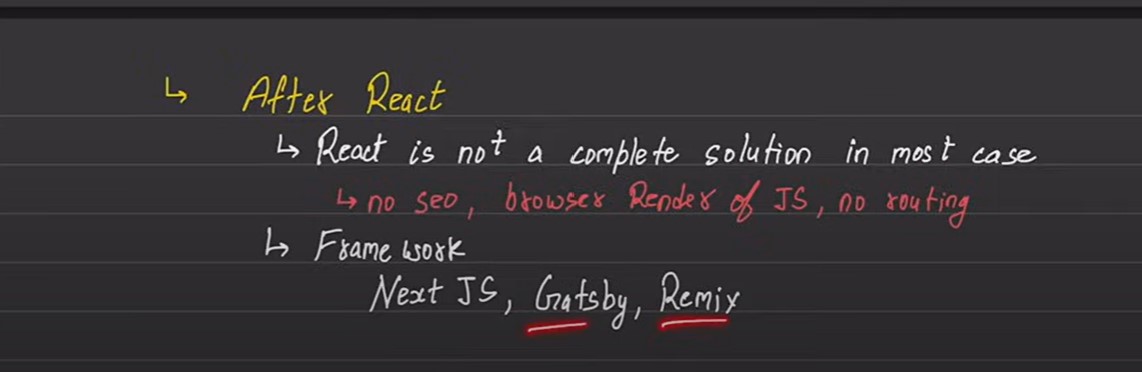 ↳ After React
↳ React is not a complete solution in most case
↳ no seo, browser Render of JS, no routing
↳ Frame work
Next JS, Gatsby, Remix